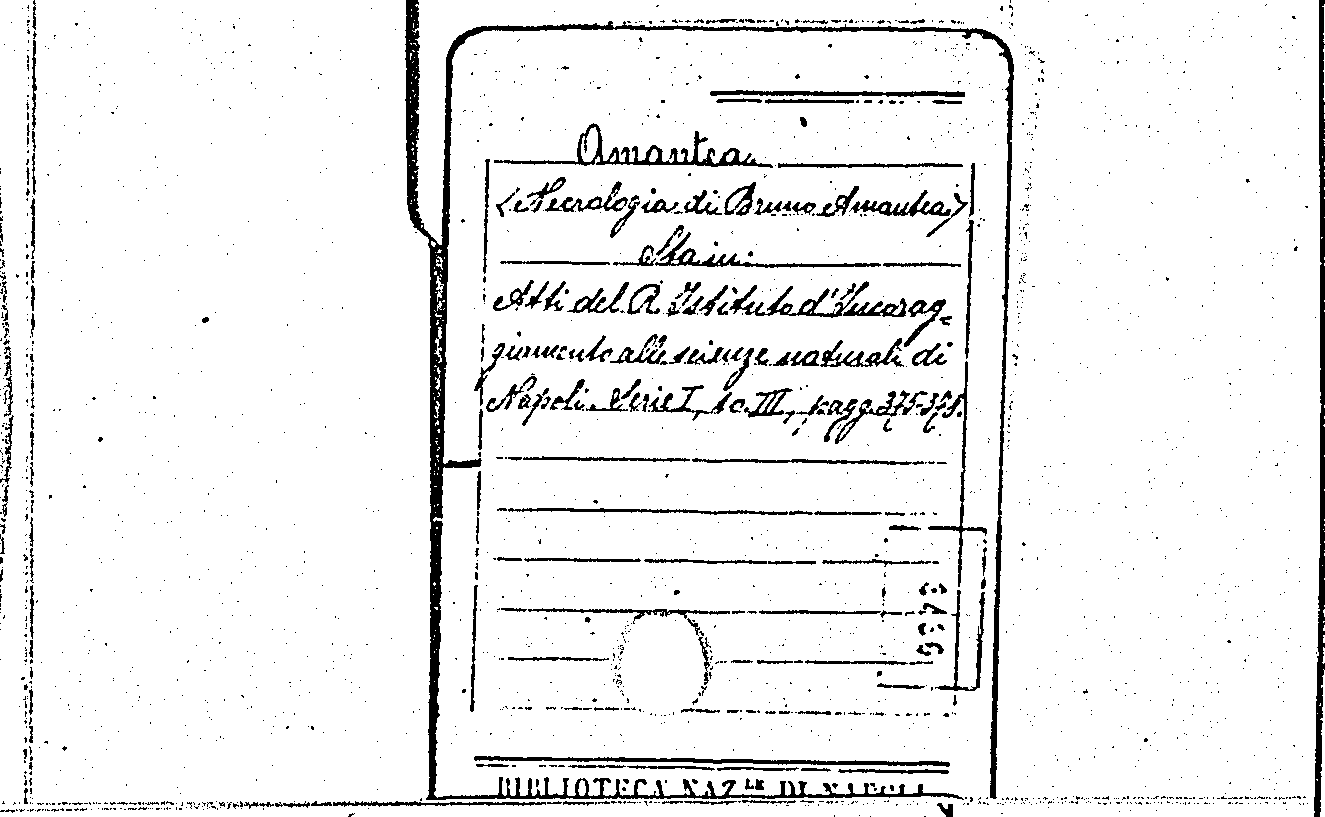 Amantea.
<Necrologia di Bruno Amantea>
Sta in:
Atti del R. Istituto d'Incorag-
giamento alle scienze naturali di
Napoli. Serie I, to. III, pagg. 375-378.
BIBLIOTECA NAZ.LE DI NAPOLI